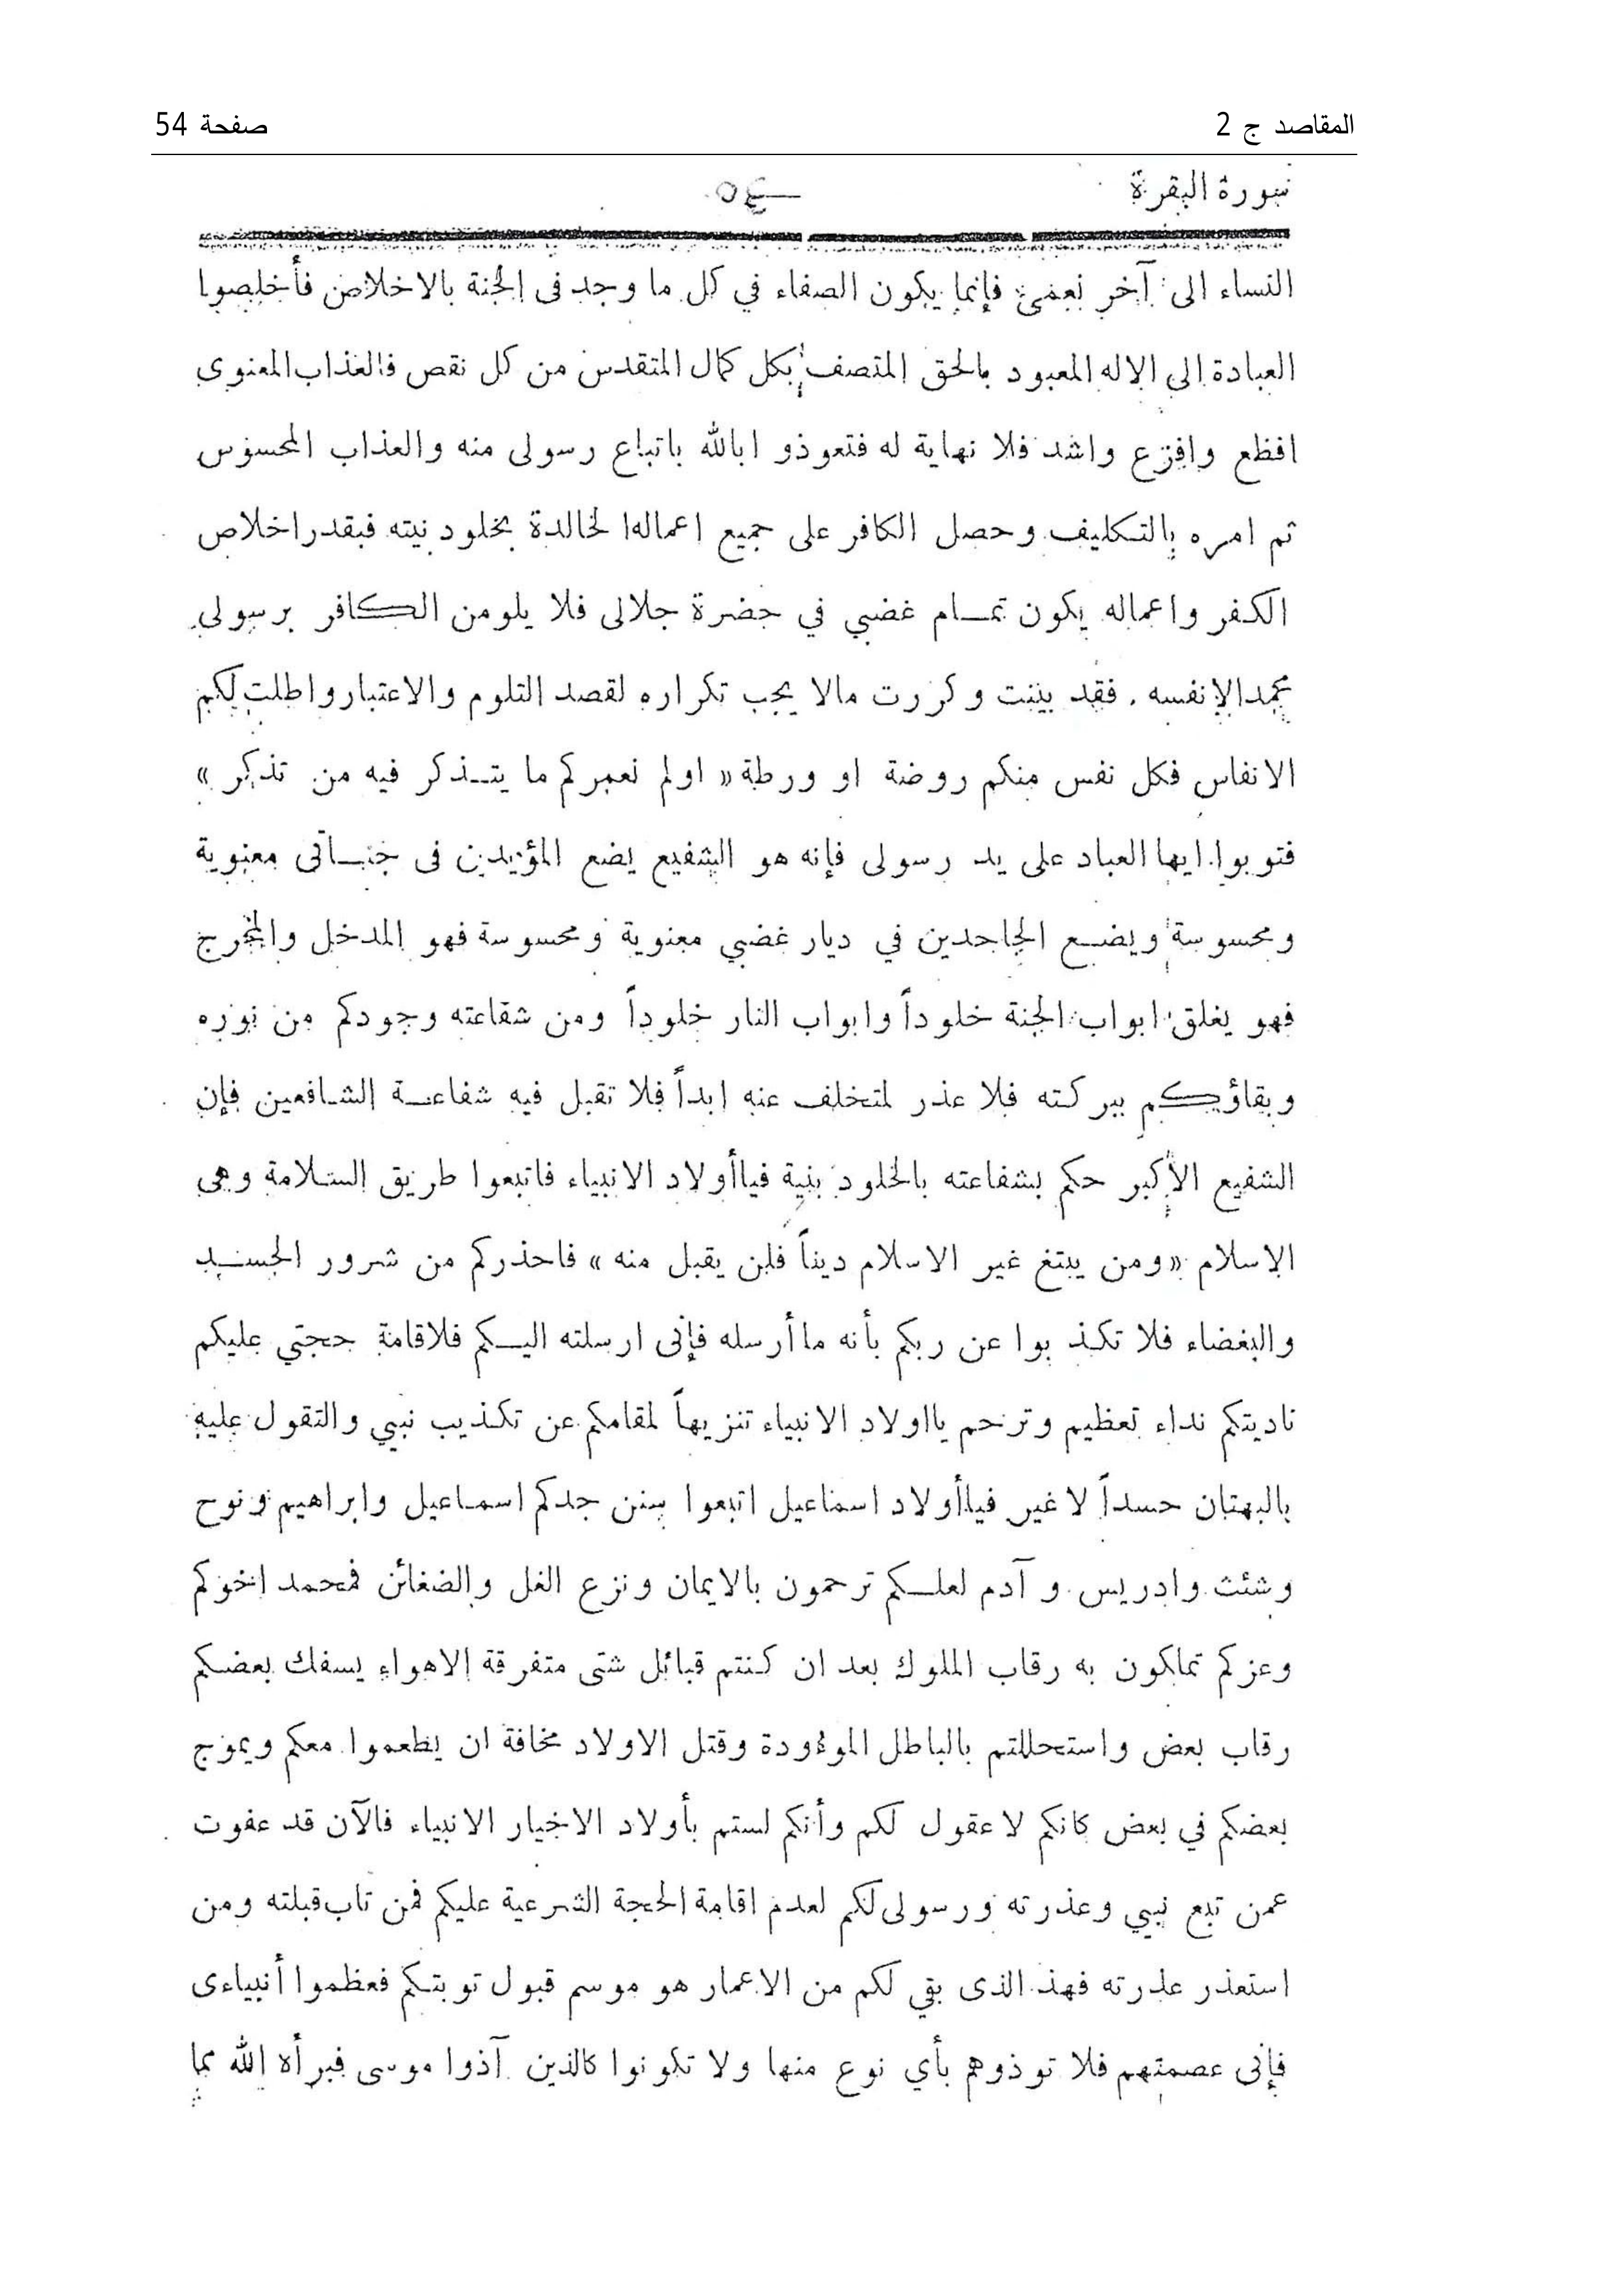 المقاصد ج 2
صفحة 54
سورة البقرة
٥٤
النساء الى آخر نعمى فإنما يكون الصفاء في كل ما وجد فى الجنة بالاخلاص فأخلصوا
العبادة الى الاله المعبود بالحق المتصف بكل كمال المتقدس من كل نقص فالعذاب المعنوى
افظع وافزع واشد فلا نهاية له فتعوذو ابالله باتباع رسولى منه والعذاب المحسوس
ثم امره بالتكليف وحصل الكافر على جميع اعماله الخالدة بخلود نيته فبقدر اخلاص
الكفر واعماله يكون تمام غضبي في حضرة جلالى فلا يلومن الكافر برسولى
محمد الا نفسه . فقد بينت وكررت مالا يجب تكراره لقصد التلوم والاعتبار واطلت لكم
الانفاس فكل نفس منكم روضة او ورطة « اولم نعمركم ما يتذكر فيه من تذكر »
فتوبوا ايها العباد على يد رسولى فإنه هو الشفيع يضع المؤيدين فى جناتى معنوية
ومحسوسة ويضع الجاحدين في ديار غضبي معنوية ومحسوسة فهو المدخل والمخرج
فهو يغلق ابواب الجنة خلوداً وابواب النار خلوداً ومن شفاعته وجودكم من نوره
وبقاؤكم ببركته فلا عذر لمتخلف عنه ابداً فلا تقبل فيه شفاعة الشافعين فإن
الشفيع الأكبر حكم بشفاعته بالخلود بنية فياأولاد الانبياء فاتبعوا طريق السلامة وهى
الإسلام «ومن يبتغ غير الاسلام ديناً فلن يقبل منه» فاحذركم من شرور الحسد
والبغضاء فلا تكذبوا عن ربكم بأنه ما أرسله فإنى ارسلته اليكم فلاقامة حجتي عليكم
ناديتكم نداء تعظيم وترحم يااولاد الانبياء تنزيهاً لمقامكم عن تكذيب نبيي والتقول عليه
بالبهتان حسداً لا غير فياأولاد اسماعيل اتبعوا سنن جدكم اسماعيل وابراهيم ونوح
وشئث وادريس و آدم لعلكم ترحمون بالايمان ونزع الغل والضغائن فمحمد اخوكم
وعزكم تملكون به رقاب الملوك بعد ان كنتم قبائل شتى متفرقة الاهواء يسفك بعضكم
رقاب بعض واستحللتم بالباطل الموءودة وقتل الاولاد مخافة ان يطعموا معكم ويموج
بعضكم في بعض كانكم لا عقول لكم وأنكم لستم بأولاد الاخيار الانبياء فالآن قد عفوت
عمن تبع نبيي وعذرته ورسولى لكم لعدم اقامة الحجة الشرعية عليكم فمن تاب قبلته ومن
استعذر عذرته فهذ الذى بقي لكم من الاعمار هو موسم قبول توبتكم فعظموا أنبياءى
فإنى عصمتهم فلا توذوهم بأي نوع منها ولا تكونوا كالذين آذوا موسى فبرأه الله مما